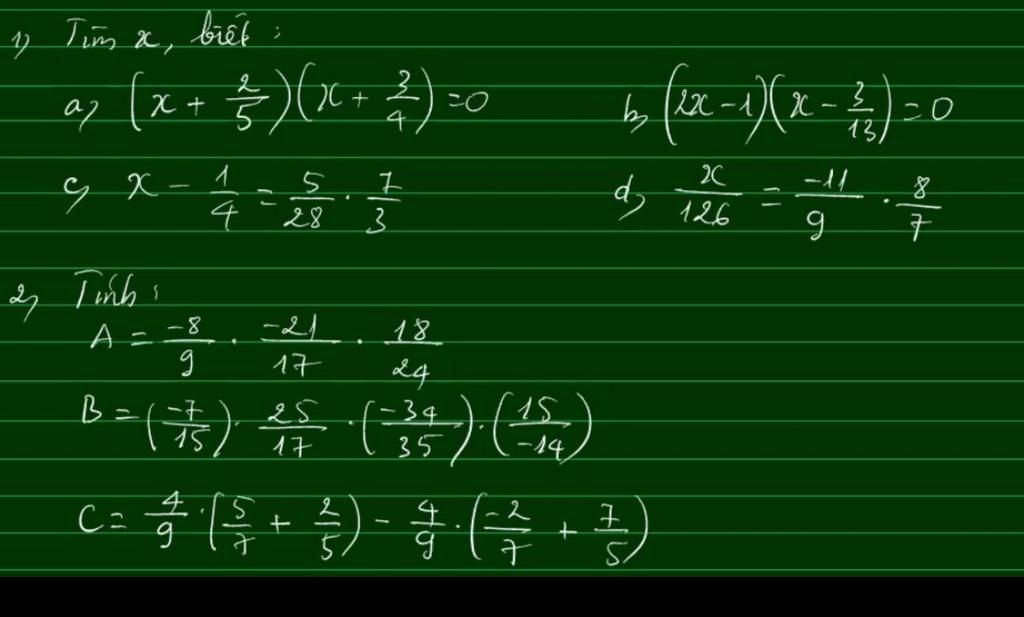 1) Tìm x, biết :
a) (x + 2/5)(x + 3/4) = 0 b) (2x - 1)(x - 3/13) = 0
c) x - 1/4 = 5/28 . 7/3 d) x/126 = -11/9 . 8/7
2) Tính :
A = -8/9 . -21/17 . 18/24
B = (-7/15) . 25/17 . (-34/35) . (15/-14)
C = 4/9 . (5/7 + 2/5) - 4/9 . (-2/7 + 7/5)